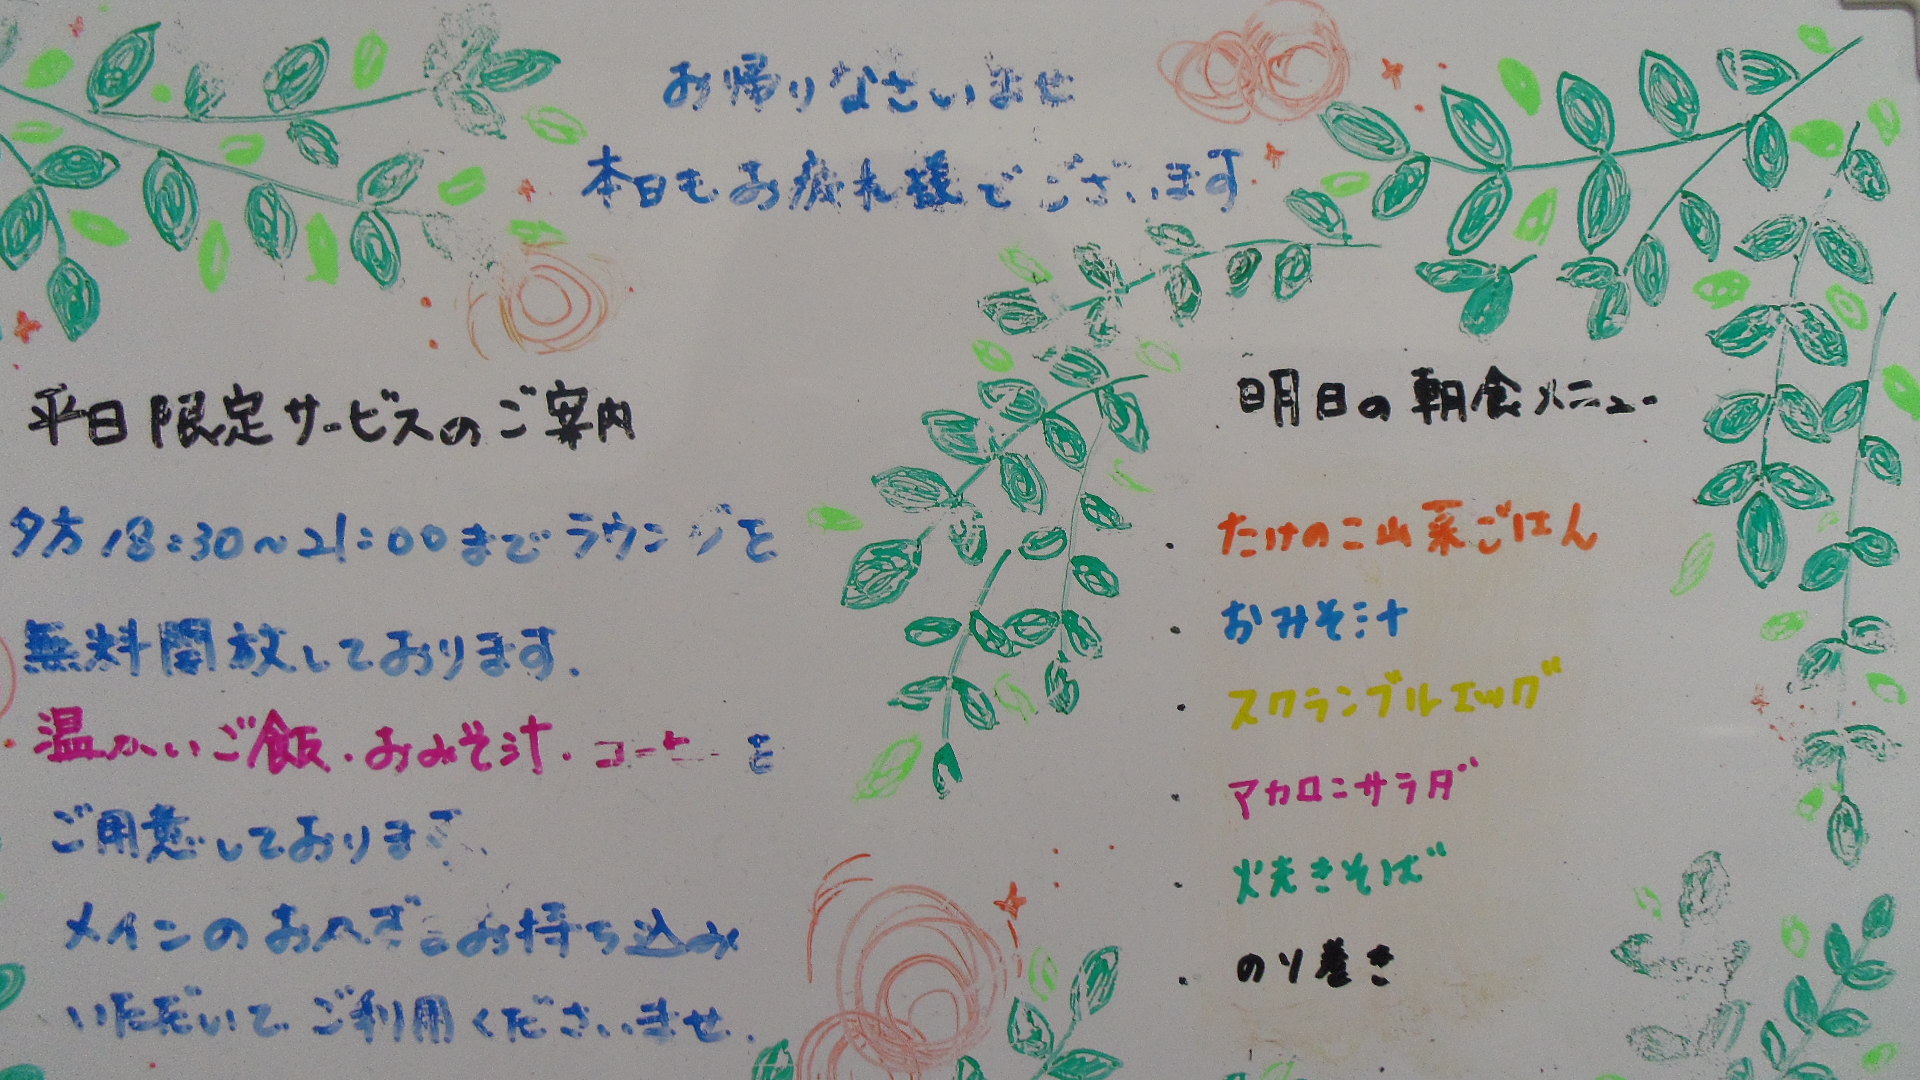 お帰りなさいませ
本日もお疲れ様でございます
平日限定サービスのご案内
夕方18:30〜21:00までラウンジを
無料開放しております.
温かいご飯・おみそ汁・コーヒーを
ご用意しております.
メインのおかずをお持ち込み
いただいてご利用くださいませ.
明日の朝食メニュー
・たけのこ山菜ごはん
・おみそ汁
・スクランブルエッグ
・マカロニサラダ
・焼きそば
・のり巻き